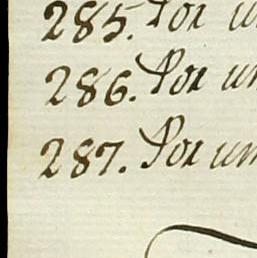 285. Por un
286. Por un
287. Por un